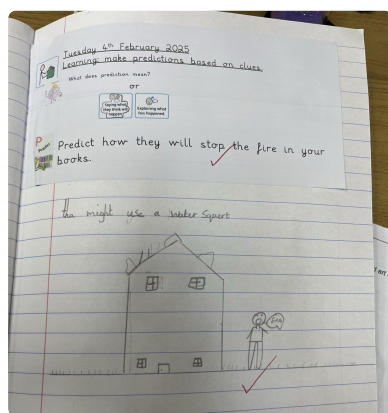 Tuesday 4th February 2025
Learning: make predictions based on clues.
What does prediction mean?
or
Saying what they think will happen
Explaining what has happened.
Predict
Predict how they will stop the fire in your
books.
might use a water Squert